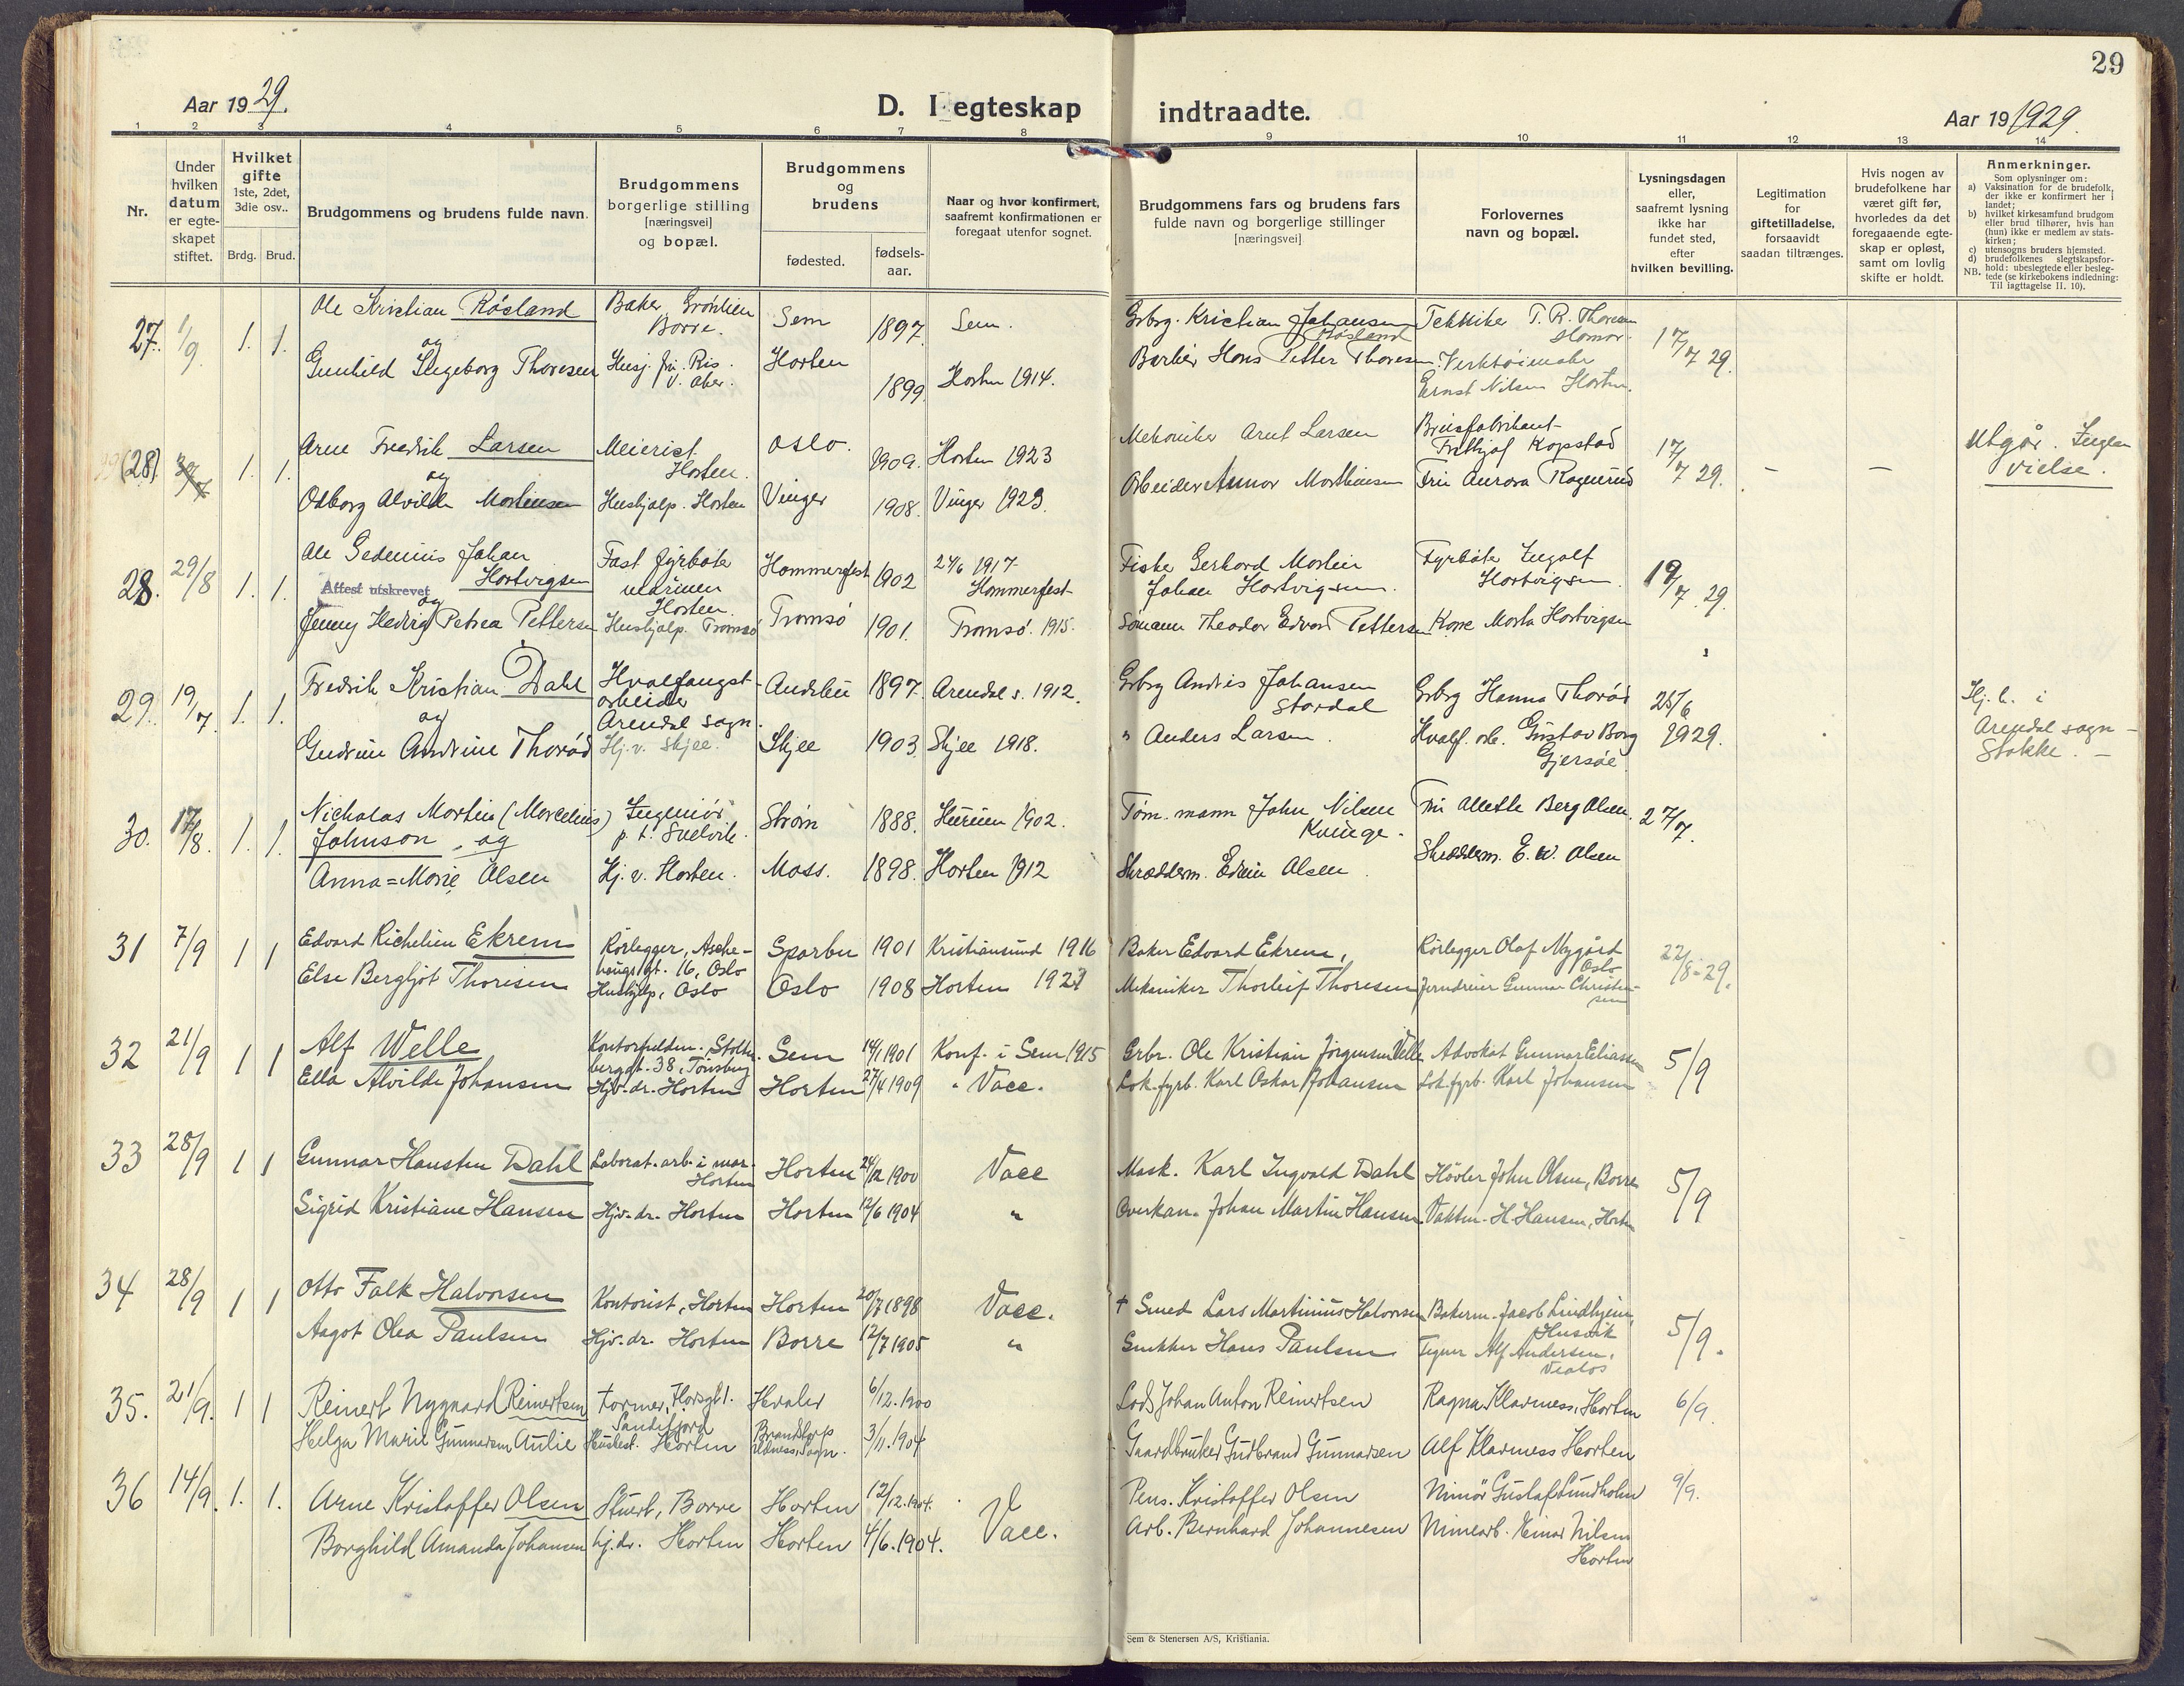 29
Aar 19 29.
D. I egteskap indtraadte.
Aar 19 1929.
1 2 3 4 5 6 7 8 9 10 11 12 13 14
Nr.
Under hvilken datum er egte-skapet stiftet.
Hvilket gifte 1ste, 2det, 3die osv..
Brdg. Brud.
Brudgommens og brudens fulde navn.
Brudgommens borgerlige stilling [næringsvei] og bopæl.
Brudgommens og brudens
fødested. fødsels-aar.
Naar og hvor konfirmert, saafremt konfirmationen er foregaat utenfor sognet.
Brudgommens fars og brudens fars fulde navn og borgerlige stillinger [næringsvei]
Forlovernes navn og bopæl.
Lysningsdagen eller, saafremt lysning ikke har fundet sted, efter hvilken bevilling.
Legitimation for giftetilladelse, forsaavidt saadan tiltrænges.
Hvis nogen av brudefolkene har været gift før, hvorledes da det foregaaende egte-skap er opløst, samt om lovlig skifte er holdt.
Anmerkninger.
Som oplysninger om:
a) Vaksination for de brudefolk, der ikke er konfirmert her i landet;
b) hvilket kirkesamfund brudgom eller brud tilhører, hvis han (hun) ikke er medlem av stats-kirken;
c) utensogns bruders hjemsted.
d) brudefolkenes slegtskapsfor-hold: ubeslegtede eller besleg-tede (se kirkebokens indledning:
NB. Til iagttagelse II. 10).
27. 1/9 1. 1. Ole Kristian Røsland Baker Grønlien Borre. Sem 1897. Sem. Grbrg. Kristian Johansen Røsland Tekniker T. R. Thoresen Hamar. 17/7 29.
og
Gunhild Ingeborg Thoresen Husj. fru Ris V. Aker. Horten 1899 Horten 1914. Barbér Hans Petter Thoresen Verktøimaker Ernst Nilsen Horten.
(28) 1. 1. Arne Fredrik Larsen Meierist Horten. Oslo. 1909. Horten 1923 Mekaniker Arnt Larsen Brusfabrikant Fritkjof Kopstad 17/7 29. – – Utgår. Ingen vielse.
og
Odborg Alvilde Mortinsen Hushjelp. Horten Vinger 1908. Vinger 1923. Arbeider Annor Mortinsen Fru Aurora Ragnerud
28. 29/8 1. 1. Ole Gedenius Johan Hartvigsen Fast fyrbøter marinen Horten. Hammerfest 1902 24/6 1917 Hammerfest Fisker Gerhard Mortin Johan Hartvigsen. Fyrbøter Ingolf Hartvigsen. 19/7. 29.
Attest utskrevet
og
Jenny Hedvig Petrea Pettersen Hushjelp. Tromsø Tromsø 1901. Tromsø. 1915. Sømann Theodor Edvard Pettersen Kone Marta Hartvigsen
29. 19/7 1. 1. Fredrik Kristian Dahl Hvalfangst-arbeider Arendal sogn. Andebu 1897. Arendal s. 1912. Grbrg Andrés Johansen Stordal Grbrg Hanna Thorød 25/6 1929. Hj. h. i Arendal sogn – Stokke. –
og
Gudrun Andrine Thorød Hj. v. Skjee. Skjee 1903 Skjee 1918. " Anders Larsen. Hvalf. arb. Gustav Borg Gjersøe.
30. 17/8. 1. 1. Nicholas Mortin (Marcelius) Johnson og Ingeniør p. t. Svelvik. Strøm 1888. Hurum 1902. Tøm. mann John Nilsen Kvinge. Fru Alette Berg Olsen. 27/7.
Anna=Marie Olsen Hj. v. Horten. Moss. 1898. Horten 1912 Skrædderm. Edvin Olsen. Skrædderm. E. W. Olsen
31 7/9 1 1 Edvard Richelieu Ekrem Rørlegger, Asche-hougsgt. 16, Oslo Sparbu 1901 Kristiansund 1916 Baker Edvard Ekrem, Rørlegger Olaf Nygård Oslo 22/8-29.
Else Bergljot Thoresen Hushjelp, Oslo Oslo 1908 Horten 1923 Mekaniker Thorleif Thoresen Jerndreier Gunnar Christensen
32 21/9 1 1 Alf Welle Kontorfuldm. Stolten-bergst. 38, Tønsberg Sem 14/1 1901 Konf. i Sem 1915 Grbr. Ole Kristian Jørgensen Velle Advokat Gunnar Eliassen 5/9
Ella Alvilde Johansen Hjv. dr. Horten Horten 27/4 1909 " Vacc. Lok. fyrb. Karl Oskar Johansen Lok. fyrb. Karl Johansen
33 28/9 1 1 Gunnar Hansten Dahl Laborat. arb. i mar. Horten Horten 24/12 1900 Vacc Mask. Karl Ingvald Dahl Høvler John Olsen, Borre 5/9
Sigrid Kristiane Hansen Hjv. dr. Horten Horten 12/6 1904 " Overkan. Johan Martin Hansen Vaktm. H. Hansen, Horten
34 28/9 1 1 Otto Falk Halvorsen Kontorist, Horten Horten 20/7 1898 Vacc. † Smed Lars Martinius Halvorsen Bakerm. Jacob Lindhjem, Husvik 5/9.
Aagot Olea Paulsen Hjv. dr. Horten Borre 12/7 1905 " Snekker Hans Paulsen Tegner Alf Andersen, Vealøs
35. 21/9. 1 1 Reinert Nygaard Reinertsen Former, Sandefjord Hvaler 6/12. 1900 Lods Johan Anton Reinertsen Ragna Klavness, Horten 6/9.
Helga Marie Gunnarsen Aulie Husbest. Horten 3/11. 1904 Gaardbruker Gudbrand Gunnarsen Alf Klavness Horten
36 14/9. 1. 1. Arne Kristoffer Olsen Stuert, Borre Horten 12/12. 1904. Vacc. Pens. Kristoffer Olsen Minør Gustaf Lundholm 9/9.
Borghild Amanda Johansen hj. dr. Horten Horten 4/6. 1904. Arb. Bernhard Johannesen Minearb. Einar Nilsen Horten
Sem & Stenersen A/S, Kristiania.